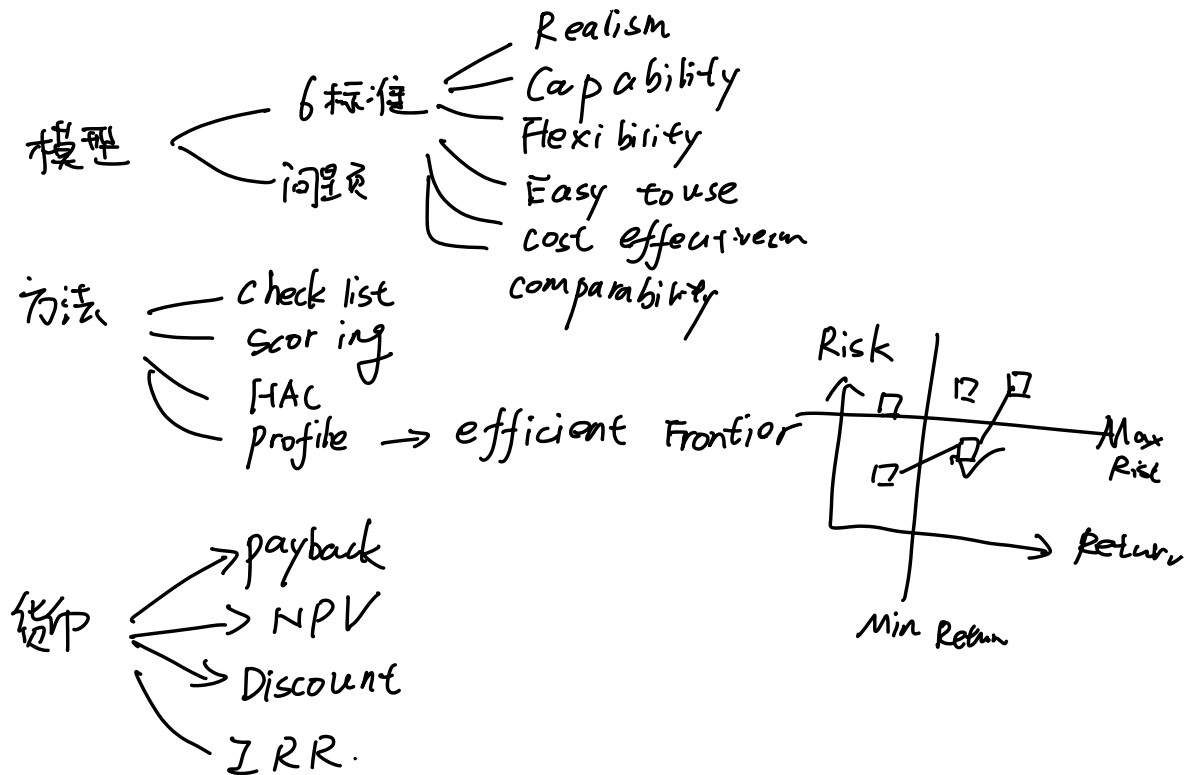 模型
6标准
Realism
Capability
Flexibirity
Easy to use
cost effectivesm
comparability
方法
check list
scoring
HAC
profile → efficient Frontior
Risk
Max
Rist
Return
Min Return
货币
payback
NPV
Discount
IRR.